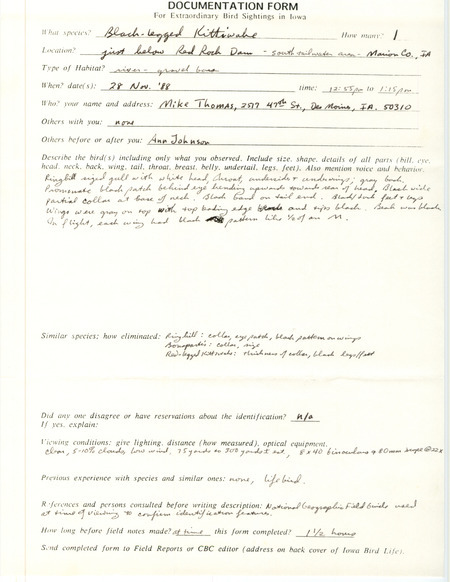 DOCUMENTATION FORM
For Extraordinary Bird Sightings in Iowa
What species? Black-legged Kittiwake How many? 1
Location? just below Red Rock Dam - south tailwater area - Marion Co., IA
Type of Habitat? river - gravel
When? date(s): 28 Nov. '88 time: 12:55pm to 1:15pm
Who? your name and address: Mike Thomas, 2517 47th St., Des Moines, IA. 50310
Others with you: none
Others before or after you: Ann Johnson
Describe the bird(s) including only what you observed. Include size, shape, details of all parts (bill, eye,
head, neck, back, wing, tail, throat, breast, belly, undertail, legs, feet). Also mention voice and behavior.
Ringbill sized gull with white head, throat, underside & underwings; gray back.
Prominate black patch behind eye bending upwards towards rear of head. Black wide
partial collar at base of neck. Black band on tail end. Black/dark feet & legs
Wings were gray on top with top leading edge and tips black. Beak was black.
In flight, each wing had black pattern like 1/2 of an M.
Similar species; how eliminated: Ringbill: collar, eye patch, black pattern on wings
Bonaparte's: collar, size
Red-legged Kittiwake: thickness of collar, black legs/feet
Did any one disagree or have reservations about the identification? n/a
If yes, explain:
Viewing conditions: give lighting, distance (how measured), optical equipment.
Clear, 5-10% clouds, low wind. 75 yards to 300 yards est, 8x40 binoculars & 80mm scope @ 22x
Previous experience with species and similar ones: none, life bird.
References and persons consulted before writing description: National Geographic Field Guide used
at time of viewing to confirm identification features
How long before field notes made? at time this form completed? 1 1/2 hours
Send completed form to Field Reports or CBC editor (address on back cover of Iowa Bird Life).